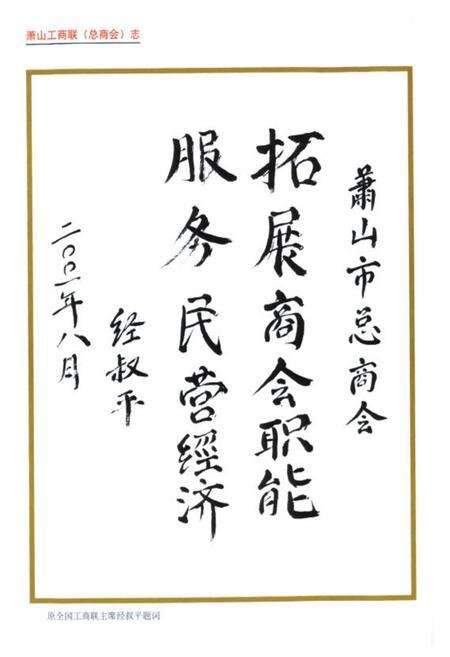 萧山工商联（总商会）志
蕭山市总商会
拓展商会职能
服务民营經济
经叔平
二〇〇一年八月
原全国工商联主席经叔平题词